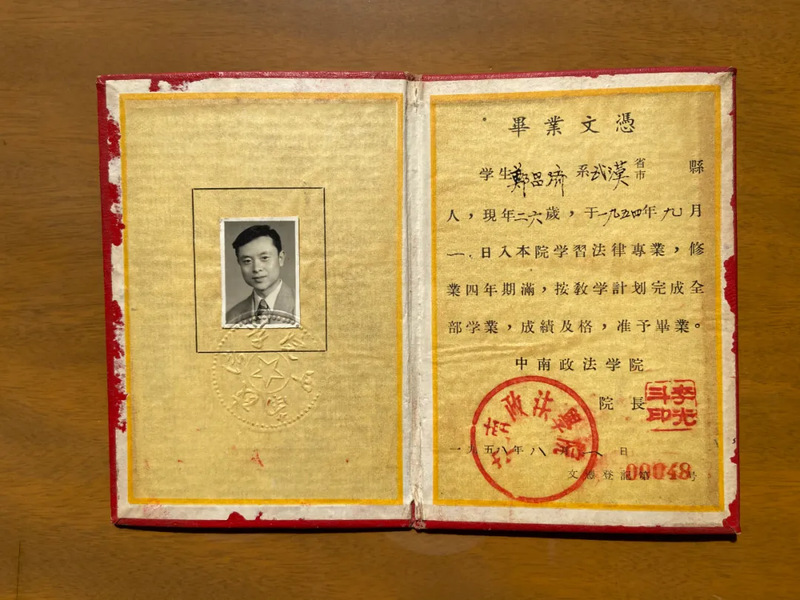 畢業文憑
学生鄭昌济系武漢省市縣
人，現年二六歲，于一九五四年九月
一日入本院学習法律專業，修
業四年期滿，按教学計划完成全
部学業，成績及格，准予畢業。
中南政法学院
院長
李光斗印
中南政法學院
一九五八年八月一日
文憑登記第00048号